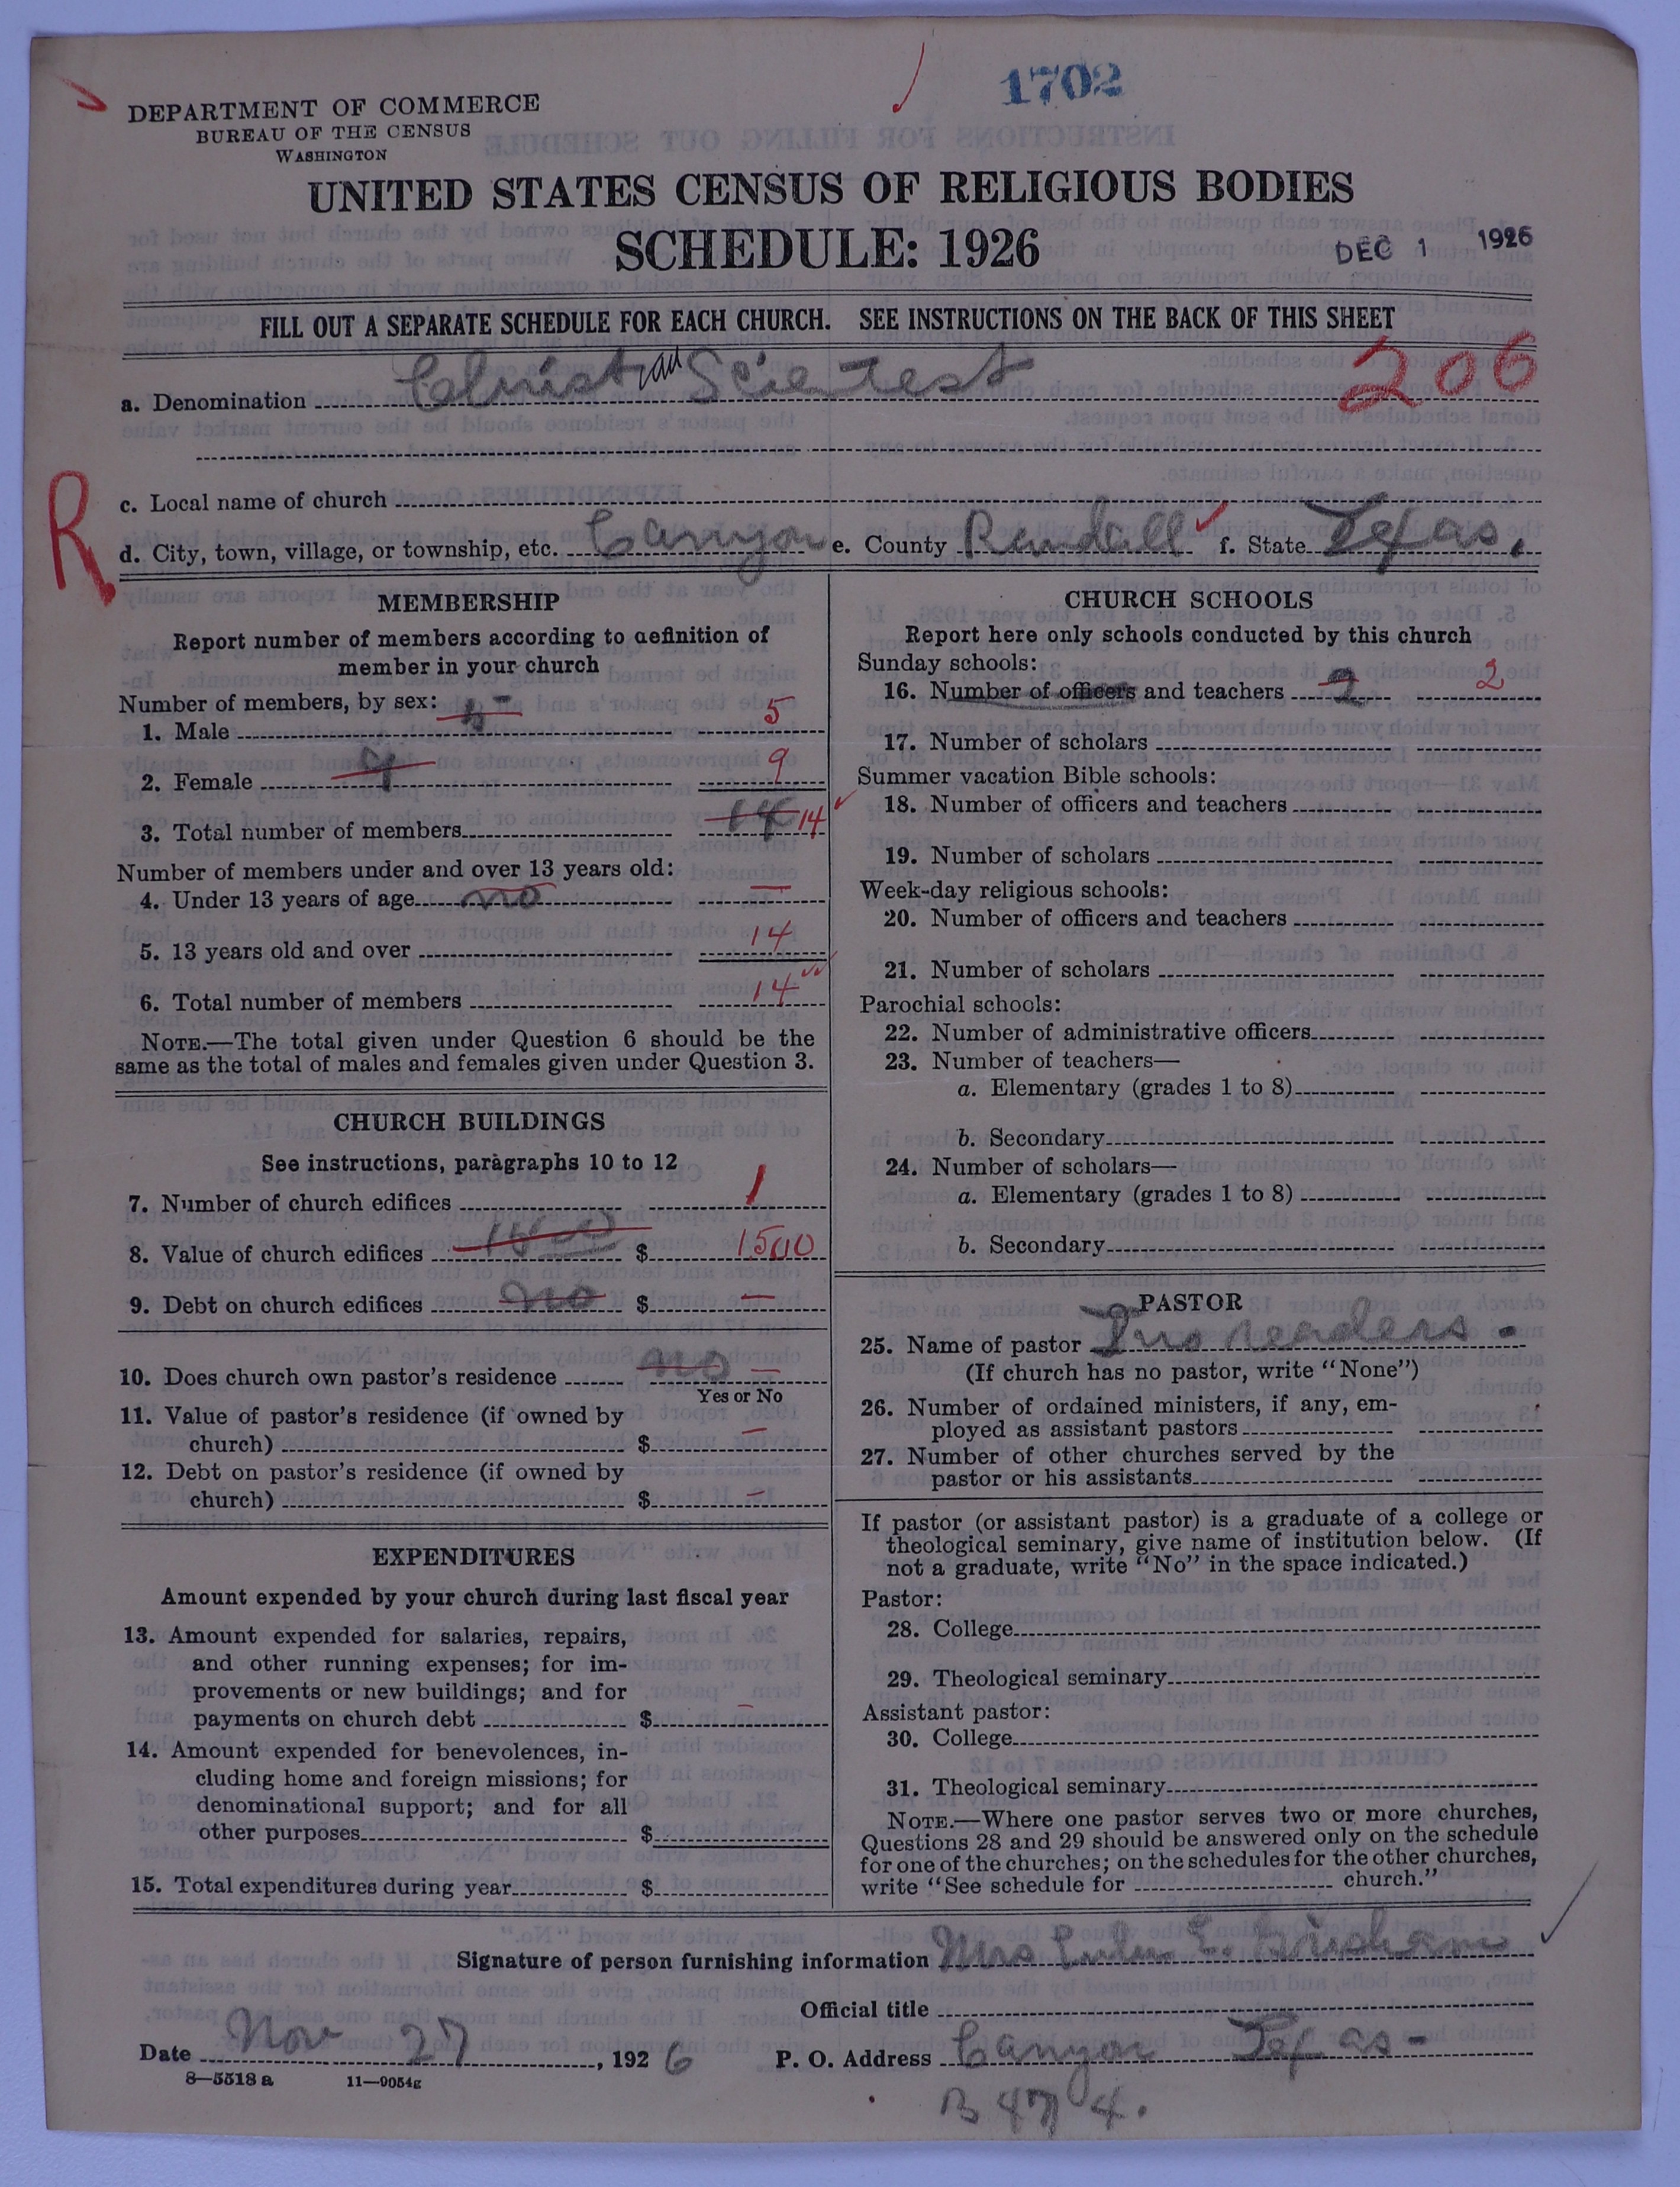 1702
DEPARTMENT OF COMMERCE
BUREAU OF THE CENSUS
WASHINGTON
UNITED STATES CENSUS OF RELIGIOUS BODIES
SCHEDULE: 1926
DEC 1 1926
FILL OUT A SEPARATE SCHEDULE FOR EACH CHURCH. SEE INSTRUCTIONS ON THE BACK OF THIS SHEET
a. Denomination Christian Scientest 206
R
c. Local name of church
d. City, town, village, or township, etc. Canyon e. County Randall f. State Texas.
MEMBERSHIP
Report number of members according to definition of
member in your church
Number of members, by sex:
1. Male 5 5
2. Female 9 9
3. Total number of members 14 14
Number of members under and over 13 years old:
4. Under 13 years of age no —
5. 13 years old and over 14
6. Total number of members 14
NOTE.—The total given under Question 6 should be the
same as the total of males and females given under Question 3.
CHURCH BUILDINGS
See instructions, paragraphs 10 to 12
7. Number of church edifices 1
8. Value of church edifices 1500 $ 1500
9. Debt on church edifices no $ —
10. Does church own pastor's residence no —
Yes or No
11. Value of pastor's residence (if owned by
church) $ —
12. Debt on pastor's residence (if owned by
church) $ —
EXPENDITURES
Amount expended by your church during last fiscal year
13. Amount expended for salaries, repairs,
and other running expenses; for im-
provements or new buildings; and for
payments on church debt $ —
14. Amount expended for benevolences, in-
cluding home and foreign missions; for
denominational support; and for all
other purposes $
15. Total expenditures during year $
CHURCH SCHOOLS
Report here only schools conducted by this church
Sunday schools:
16. Number of officers and teachers 2 2
17. Number of scholars
Summer vacation Bible schools:
18. Number of officers and teachers
19. Number of scholars
Week-day religious schools:
20. Number of officers and teachers
21. Number of scholars
Parochial schools:
22. Number of administrative officers
23. Number of teachers—
a. Elementary (grades 1 to 8)
b. Secondary
24. Number of scholars—
a. Elementary (grades 1 to 8)
b. Secondary
PASTOR
25. Name of pastor Two readers.
(If church has no pastor, write "None")
26. Number of ordained ministers, if any, em-
ployed as assistant pastors
27. Number of other churches served by the
pastor or his assistants
If pastor (or assistant pastor) is a graduate of a college or
theological seminary, give name of institution below. (If
not a graduate, write "No" in the space indicated.)
Pastor:
28. College
29. Theological seminary
Assistant pastor:
30. College
31. Theological seminary
NOTE.—Where one pastor serves two or more churches,
Questions 28 and 29 should be answered only on the schedule
for one of the churches; on the schedules for the other churches,
write "See schedule for church."
Signature of person furnishing information Mrs E.
Official title
Date Nov 27, 1926 P. O. Address Canyon Texas-
8—5518 a 11—9054g
B 474.